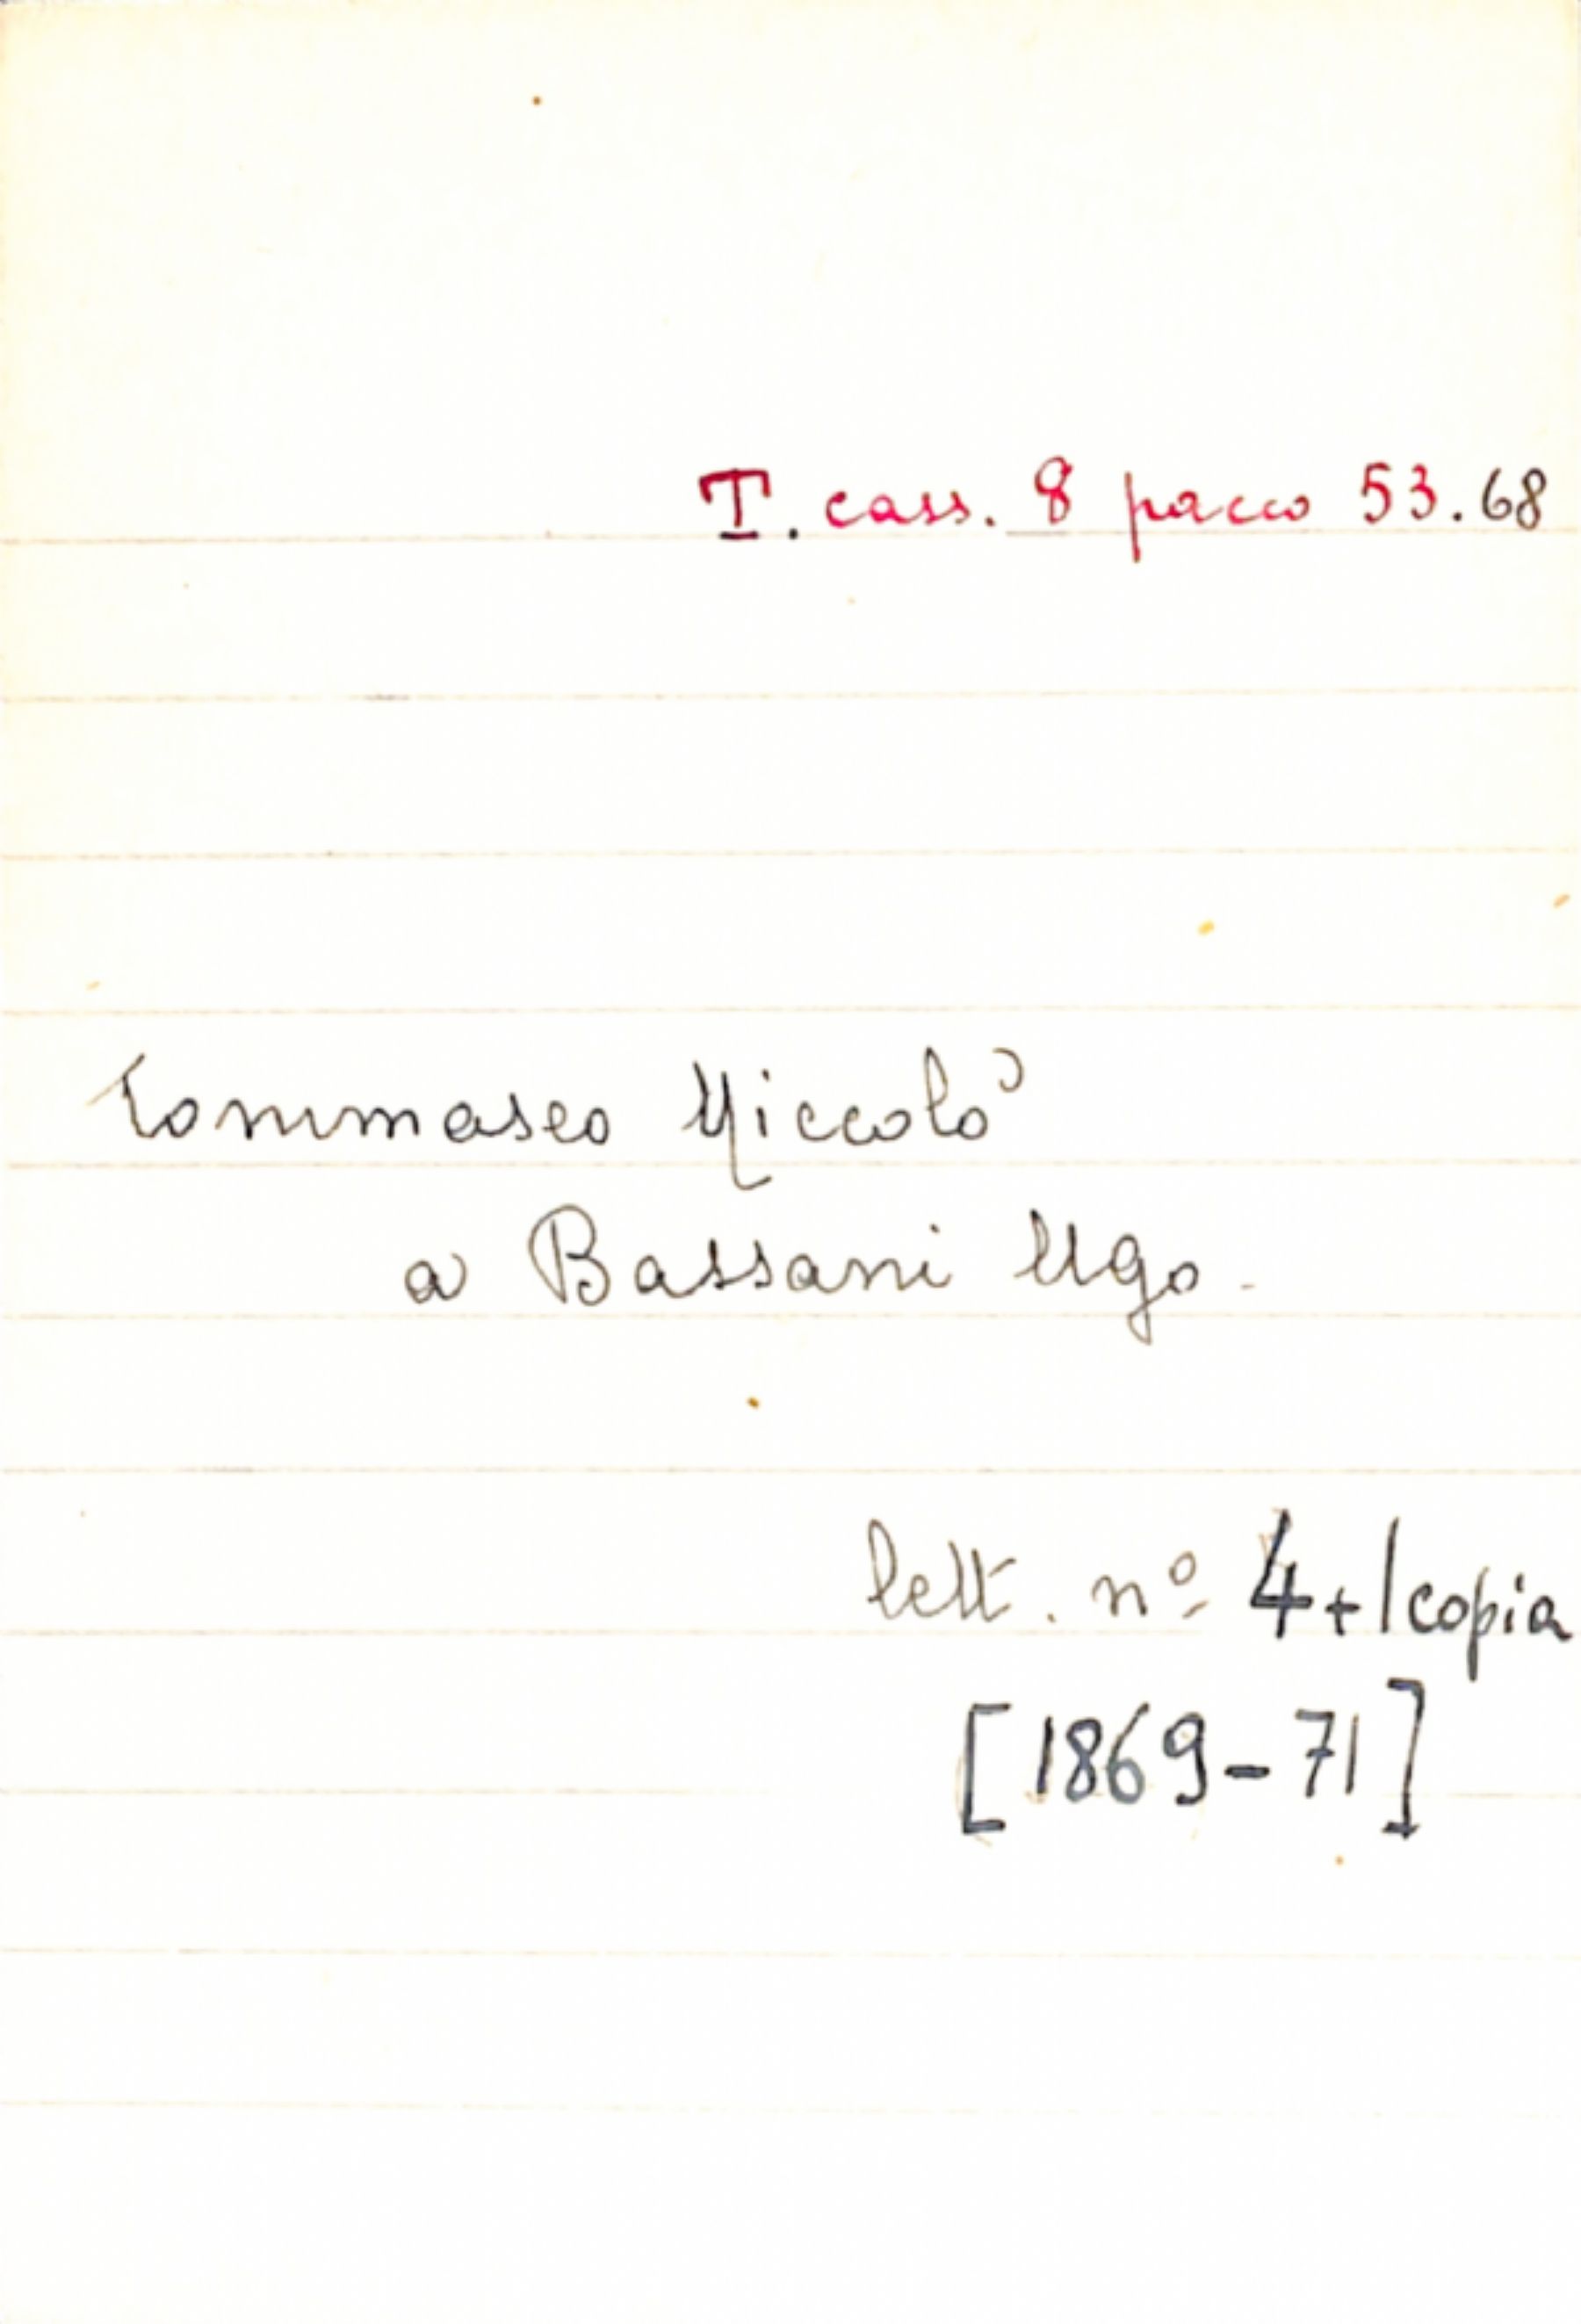 T. cass. 8 pacco 53.68
Tommaseo Niccolò
a Bassani Ugo.
lett. nº 4 + 1 copia
[1869-71]